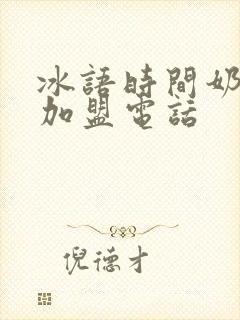 冰語時間奶
加盟電話
倪德才